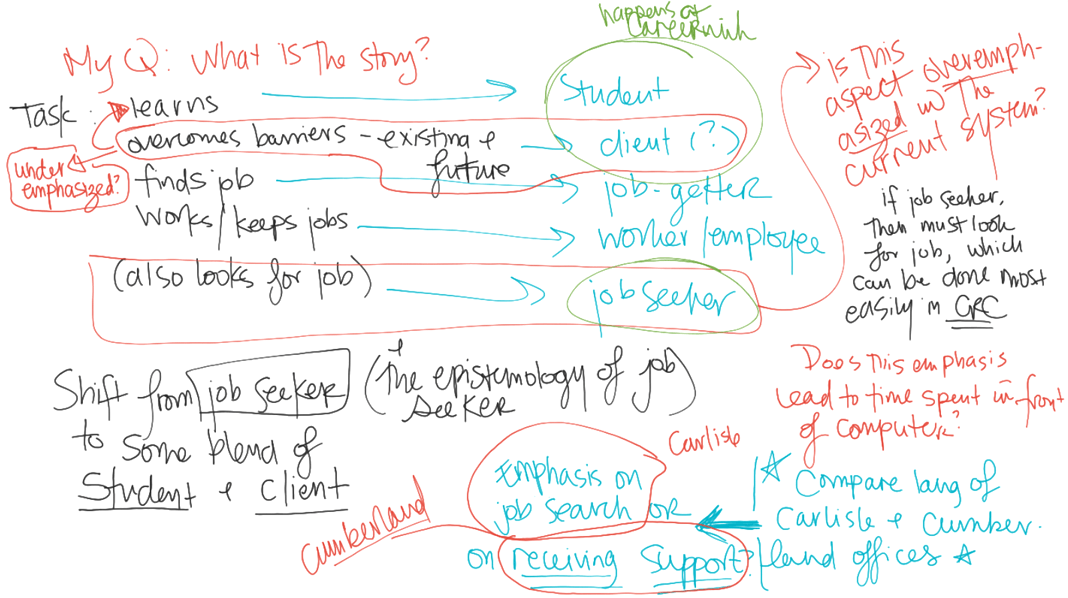 happens at
My Q: What is the story?
Task: learns
Student
overcomes barriers - existing +
future
client (?)
under
emphasized?
finds job
job-getter
works/keeps jobs
worker/employee
(also looks for job)
job seeker
is this
aspect overemph-
asized in the
current system?
if job seeker,
then must look
for job, which
can be done most
easily in CRC
Shift from job seeker
to some blend of
Student + client
(The epistemology of job
seeker)
Does this emphasis
lead to time spent in front
of computer?
Carlisle
Emphasis on
job search or
on receiving support?
Cumberland
☆ Compare lang of
Carlisle + Cumber-
land offices ☆